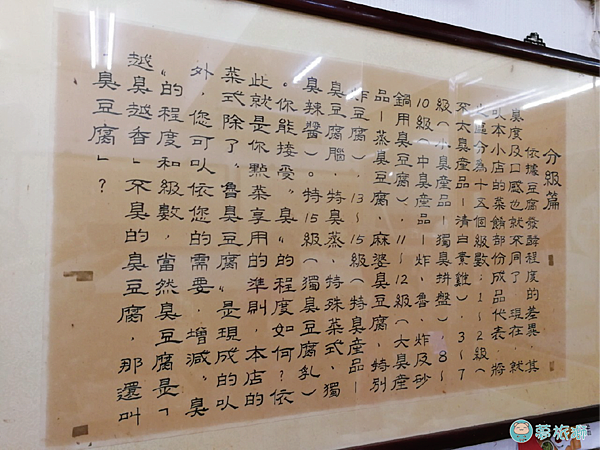 分級篇
依據豆腐發酵程度的差異，其
臭度及口感也就不同了，現在，就
以本小店的菜餚部份成品代表，將
之區分為十五個級數：1～2級（
不太臭產品—清白素雞） 3～7
級（小臭產品—獨臭拼盤） 8～
10級（中臭產品—炸、魯、炸及砂
鍋用臭豆腐），11～12級（大臭產
品—蒸臭豆腐、麻婆臭豆腐、特別
炸豆腐），13～15級（特臭產品—
臭豆腐腦、特臭蒸、特殊菜式、獨
臭辣醬）。特15級（獨臭豆腐乳）
。你能接受〝臭〞的程度如何？依
此就是你點菜享用的準則，本店的
菜式除了〝魯臭豆腐〞是現成的以
外，您可以依您的需要，增減〝臭
〞的程度和級數，當然臭豆腐是「
越臭越香」不臭的臭豆腐，那還叫
「臭豆腐」？